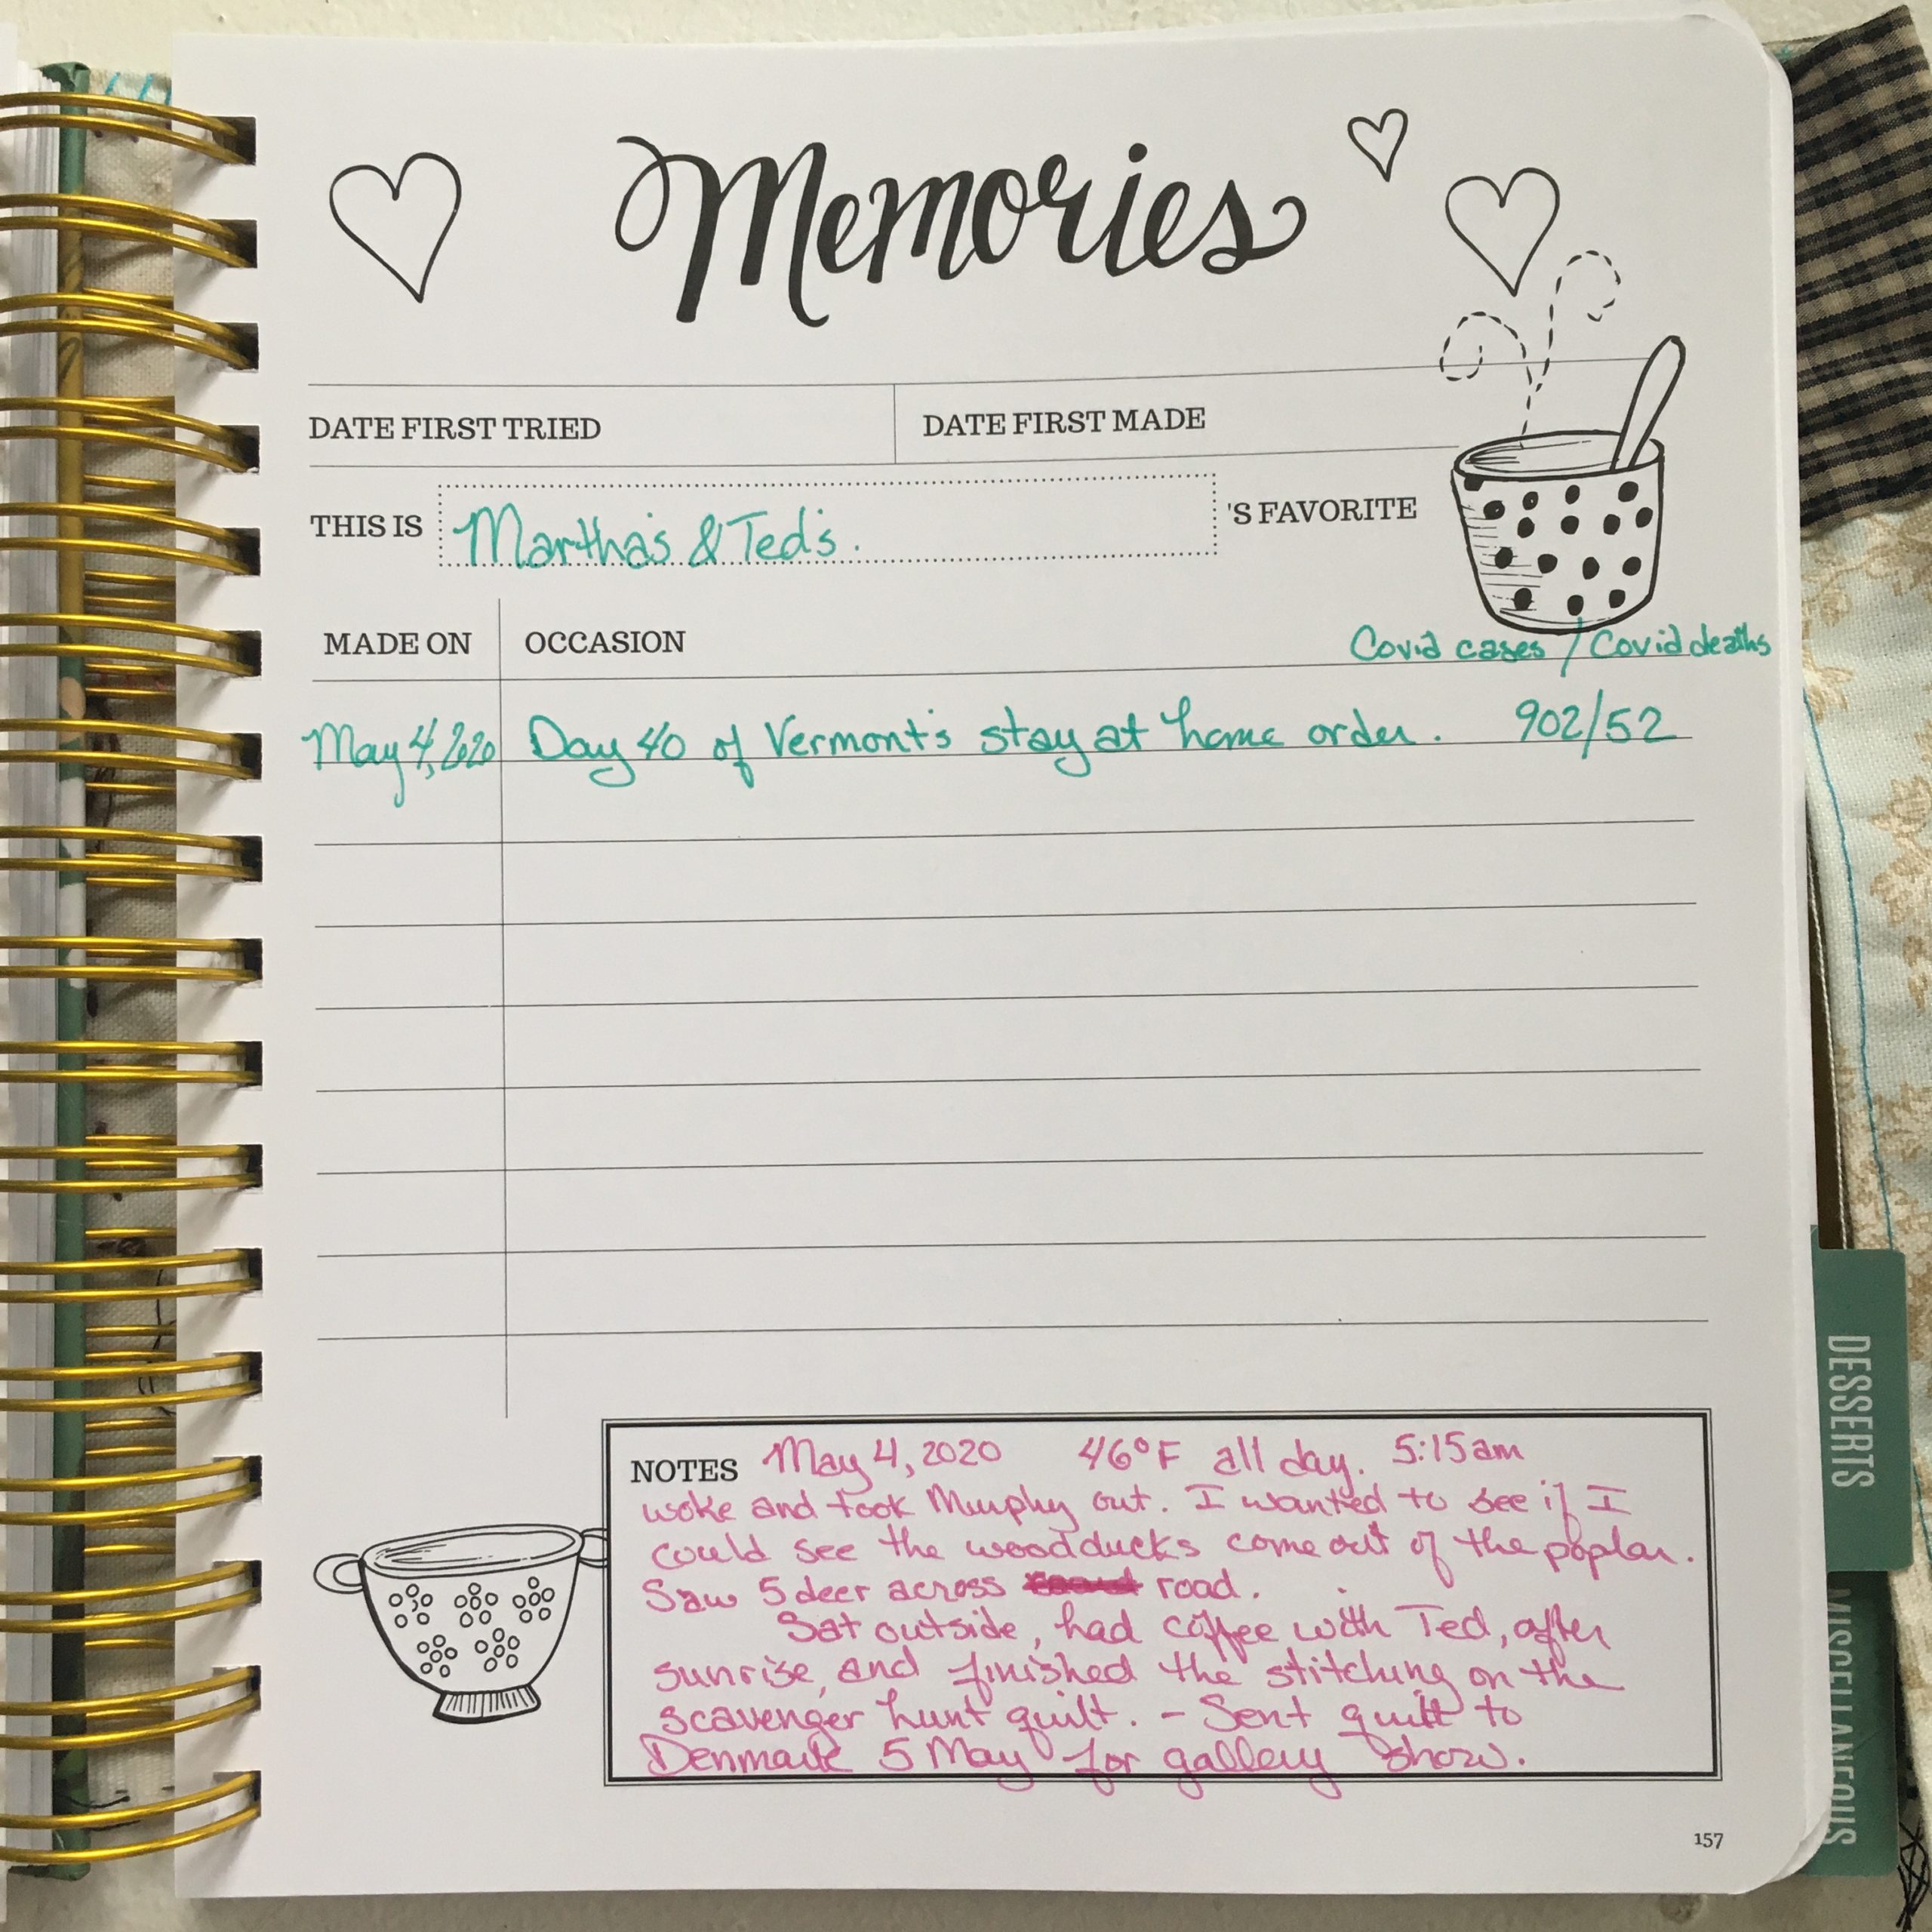 Memories
DATE FIRST TRIED DATE FIRST MADE
THIS IS Martha's & Ted's. 'S FAVORITE
MADE ON OCCASION Covid cases / Covid deaths
May 4, 2020 Day 40 of Vermont's stay at home order. 902/52
NOTES May 4, 2020 46°F all day. 5:15am
woke and took Murphy out. I wanted to see if I
could see the woodducks come out of the poplar.
Saw 5 deer across road.
Sat outside, had coffee with Ted, after
sunrise, and finished the stitching on the
scavenger hunt quilt. - Sent quilt to
Denmark 5 May for gallery show.
157
DESSERTS
MISCELLANEOUS